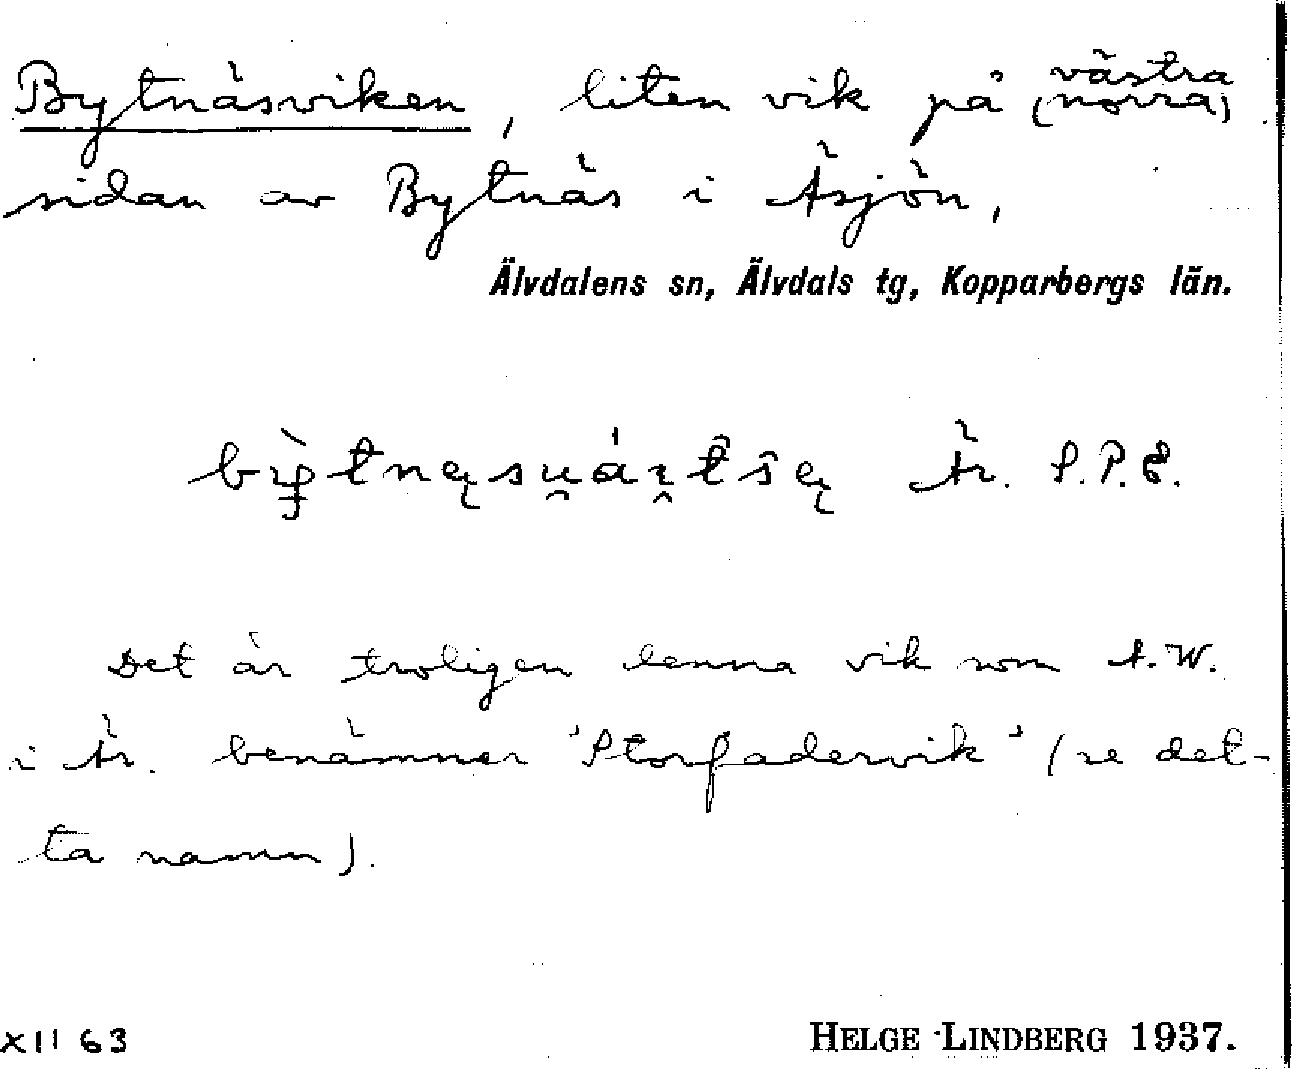 Bytnäsviken, liten vik på västra (norra)
sidan av Bytnäs i Äsjön,
Älvdalens sn, Älvdals tg, Kopparbergs län.
Är. S.P.E.
Det är troligen denna vik som A.W.
i Är. benämner 'Storfadervik' (se det-
ta namn).
XII 63 HELGE LINDBERG 1937.